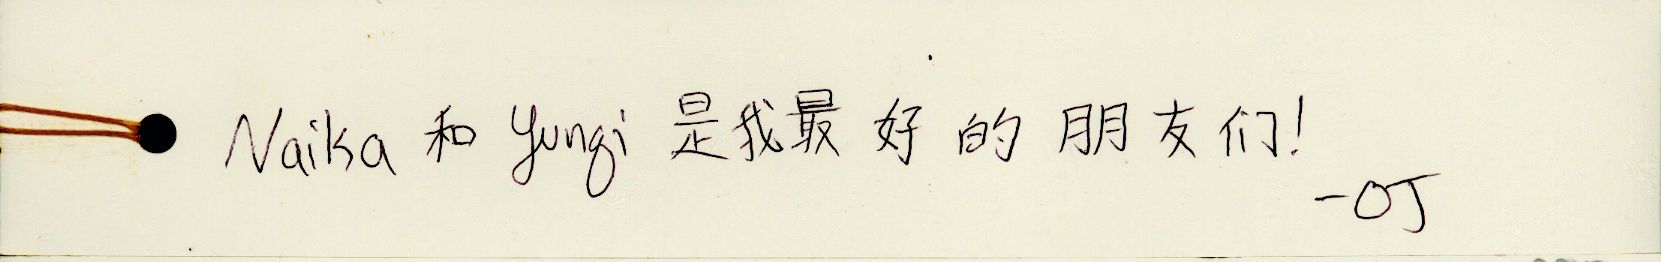 Naika 和 Yungi 是我最好的朋友们!
-OJ